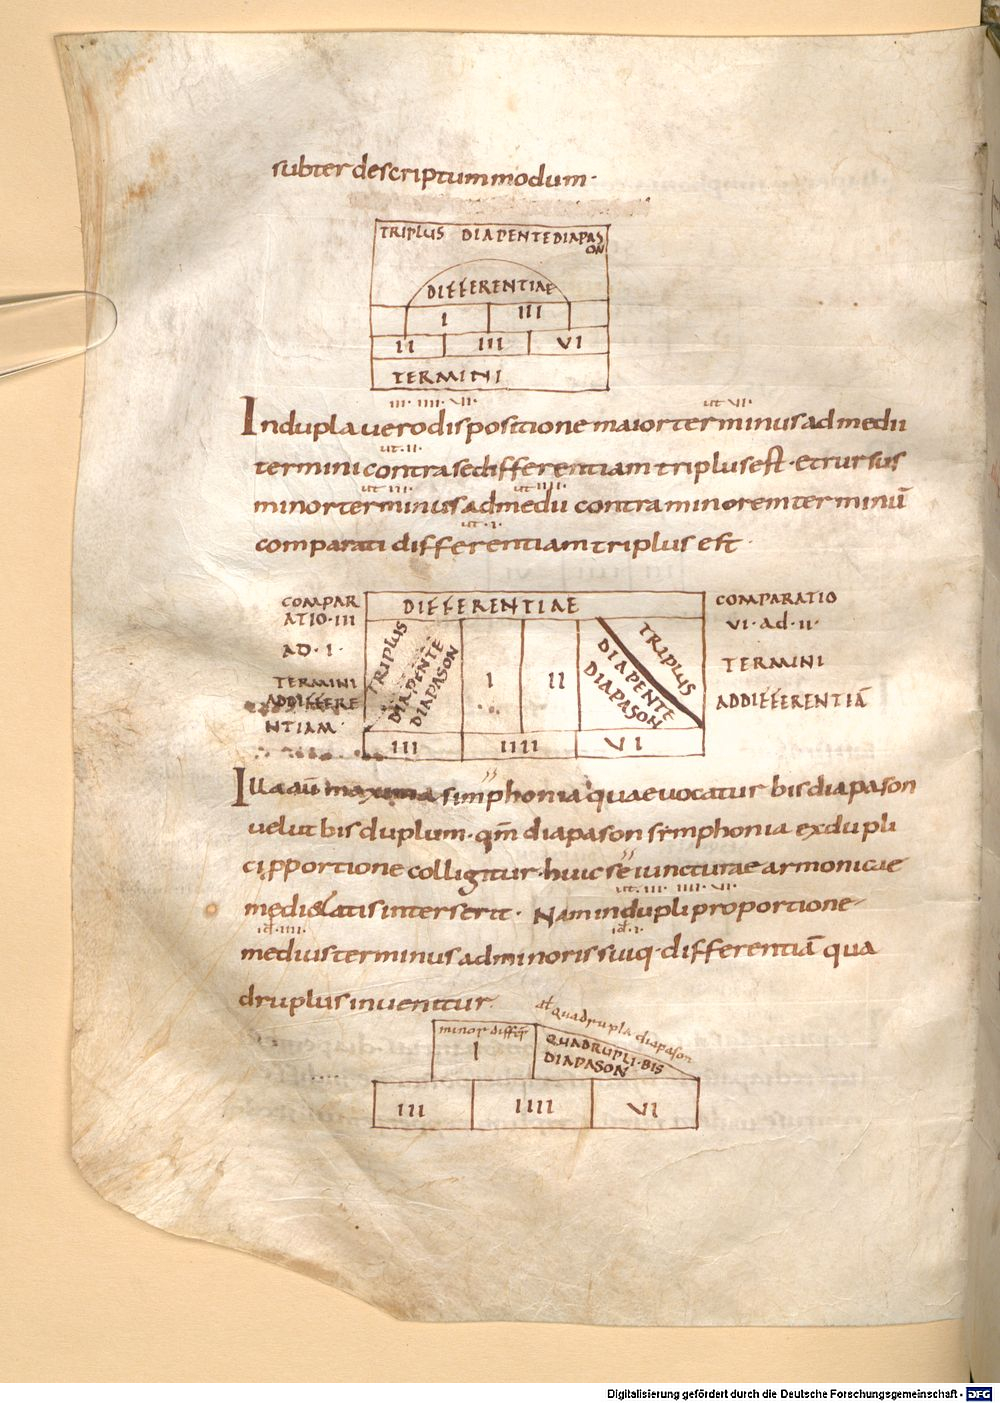 subter descriptum modum·
TRIPLUS DIAPENTE DIAPAS
ON
DIFFERENTIAE
I III
II III VI
TERMINI
III· IIII· VI· ut VI·
In dupla uero dispositione maior terminus ad medii
ut·II·
termini contra se differentiam triplus est· et rursus
ut III· ut IIII·
minor terminus ad medii contra minorem terminū
ut·I·
comparati differentiam triplus est·
COMPAR
ATIO·III
AD·I·
TERMINI
AD DIFFERE
NTIAM·
DIFFERENTIAE
TRIPLUS
DIAPENTE
DIAPASON
I II
TRIPLUS
DIAPENTE
DIAPASON
III IIII VI
COMPARATIO
VI·ad·II·
TERMINI
AD DIFFERENTIĀ
Illa aū maxima simphonia quae uocatur bis diapason
uelut bis duplum· qm̄ diapason simphonia ex dupli
ci pportione colligitur· huic se iuncturae armonicae
ut·III· IIII· VI·
medi&atis interserit· Nam in dupli proportione
id·IIII· id·I·
medius terminus ad minoris suiq· differentiā qua
druplus inuenitur·
at quadrupla diapason
minor differ̄
I
QUADRUPLI·BIS
DIAPASON
III IIII VI
Digitalisierung gefördert durch die Deutsche Forschungsgemeinschaft - DFG